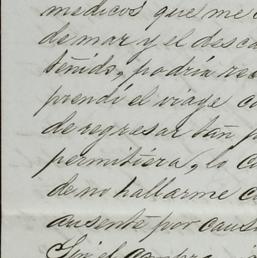 medicos que me
de mar y el desca
teñido, podria re
prendi el viaje co
de regresar tan p
permitiera, lo c
de no hallarme c
ausente por caus